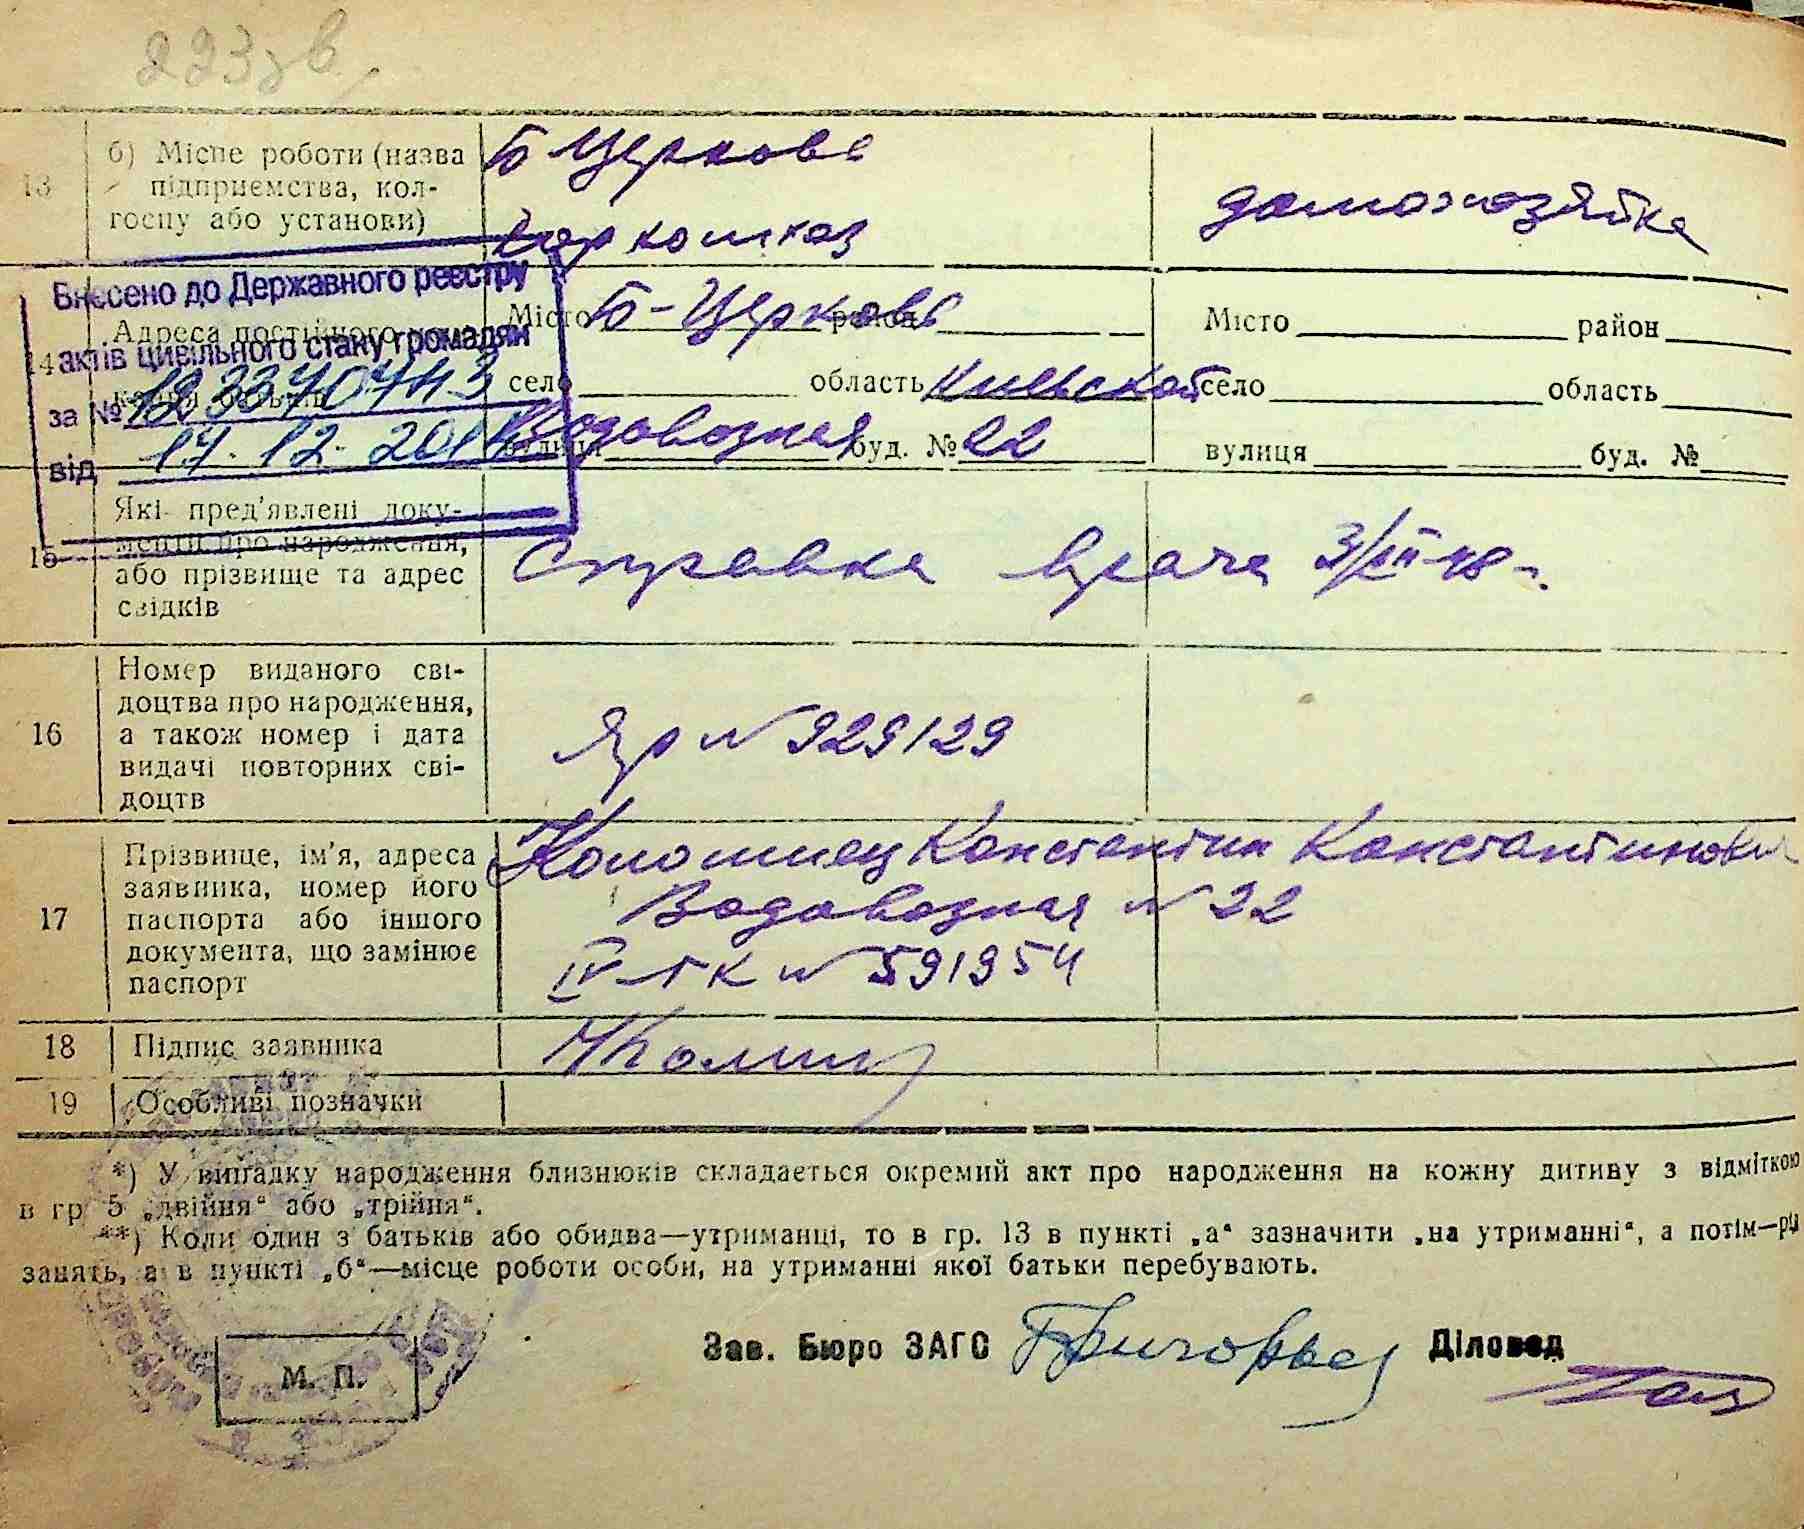 223зв
13
б) Місце роботи (назва
підприємства, кол-
госпу або установи)
Б Церковь
Горкомхоз
домохозяйка
Внесено до Державного реєстру
актів цивільного стану громадян
за № 1233740743
від 17.12.2014
14
Адреса постійного
Місто Б-Церковь район
село область Киевской
вулиця Водовозная буд. № 22
Місто район
село область
вулиця буд. №
15
Які пред'явлені доку-
менти про народження,
або прізвище та адрес
свідків
Справка врача 3/XII-48 г.
16
Номер виданого сві-
доцтва про народження,
а також номер і дата
видачі повторних сві-
доцтв
Яр № 929129
17
Прізвище, ім'я, адреса
заявника, номер його
паспорта або іншого
документа, що замінює
паспорт
Коломиец Константин Константинови
Водовозная № 22
IV-ГК № 591954
18
Підпис заявника
19
Особливі позначки
*) У випадку народження близнюків складається окремий акт про народження на кожну дитину з відміткою
в гр 5 „двійня“ або „трійня“.
**) Коли один з батьків або обидва—утриманці, то в гр. 13 в пункті „а“ зазначити „на утриманні“, а потім—рі
занять, а в пункті „б“—місце роботи особи, на утриманні якої батьки перебувають.
Зав. Бюро ЗАГС
Діловод
М. П.